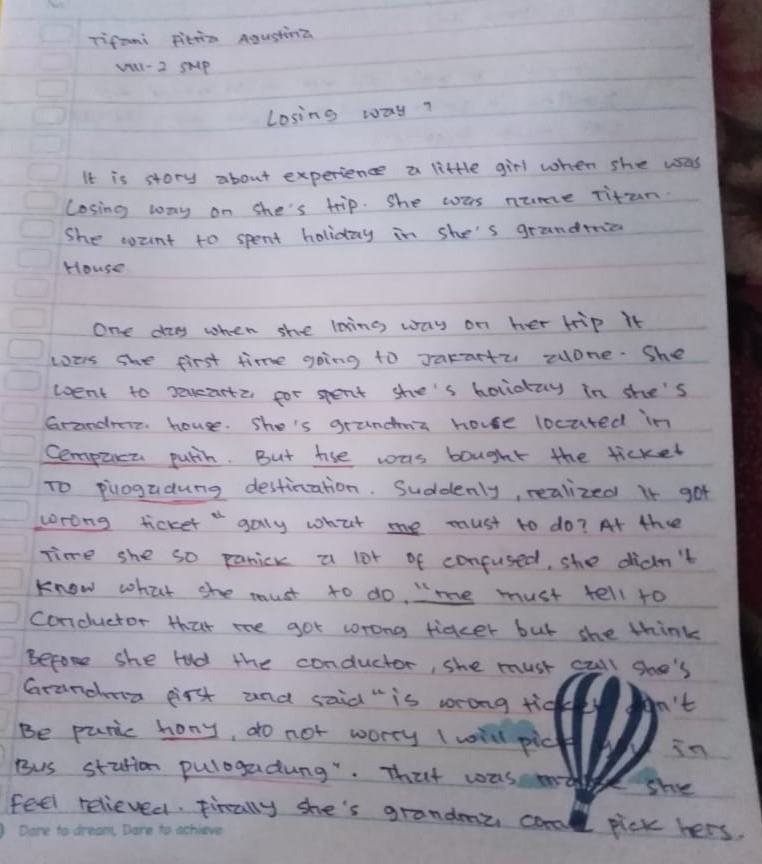 Tifani Fitria Agustina
VIII-2 SMP
Losing way ?
It is story about experience a little girl when she was
Losing way on she's trip. She was name Titan.
She want to spent holiday in she's grandma
House
One day when she losing way on her trip It
was she first time going to Jakarta alone. She
went to Jakarta for spent she's holiday in she's
Grandma house. She's grandma house located in
Cempaka putih. But hse was bought the ticket
To pulogadung destination. Suddenly, realized it got
wrong ticket " galy what me must to do? At the
Time she so panick a lot of confused, she didn't
know what she must to do, "me must tell to
Conductor that me got wrong ticket but she think
Before she told the conductor, she must call she's
Grandma first and said "is wrong ticket don't
Be panic hony, do not worry I will pick in
Bus station pulogadung". That was she
Feel relieved. Finally she's grandma came pick hers.
Dare to dream, Dare to achieve